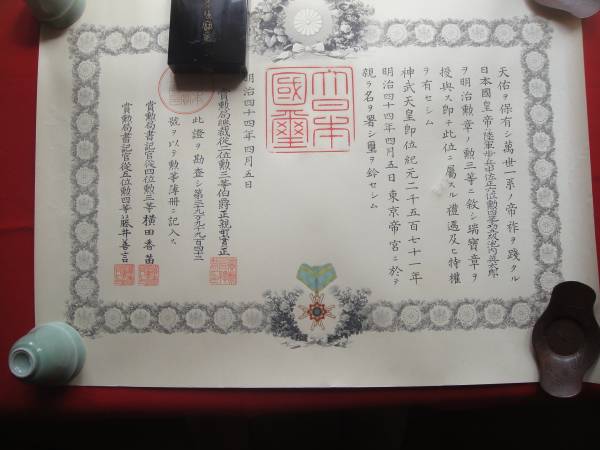 天佑ヲ保有シ萬世一系ノ帝祚ヲ踐タル
日本國皇帝ハ陸軍歩兵中佐正六位勲四等功
ヲ明治勲章ノ勲三等ニ敍シ瑞寶章ヲ
授與ス即チ此位ニ屬スル禮遇及ヒ特權
ヲ有セシム
神武天皇即位紀元二千五百七十一年
明治四十四年四月五日東京帝宮ニ於テ
親ラ名ヲ署シ璽ヲ鈐セシム
大日本
國璽
明治四十四年四月五日
賞勲局總裁從二位勲三等伯爵正親町實正
此證ヲ勘査シ第二九九百四十三
號ヲ以テ勲等簿冊ニ記入ス
賞勲局書記官從四位勲三等 横田香苗
賞勲局書記官從五位勲四等 藤井善言